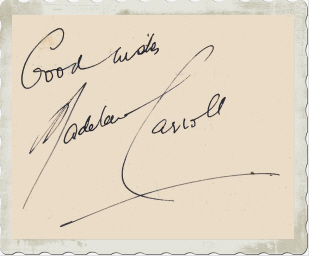 Good wishes
Madeleine
Carroll